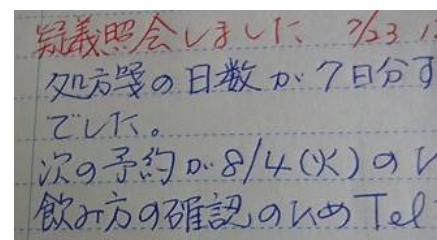 疑義照会しました 7/23 1
処方箋の日数が7日分す
でした。
次の予約が8/4(火)の
飲み方の確認のためTel